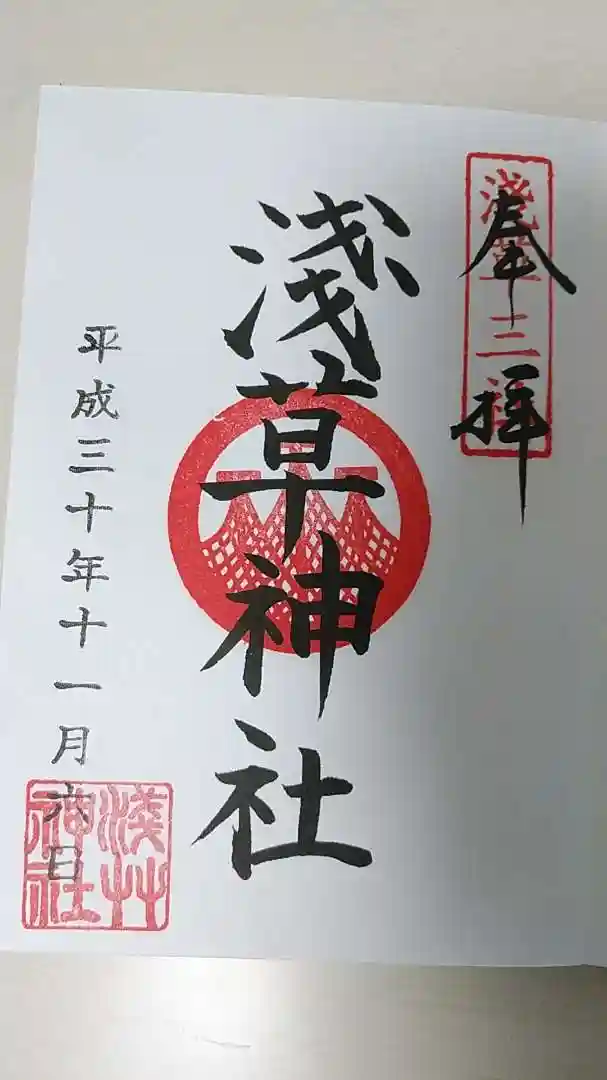 奉拝
淺草三社
浅草神社
平成三十年十一月六日
淺草
神社